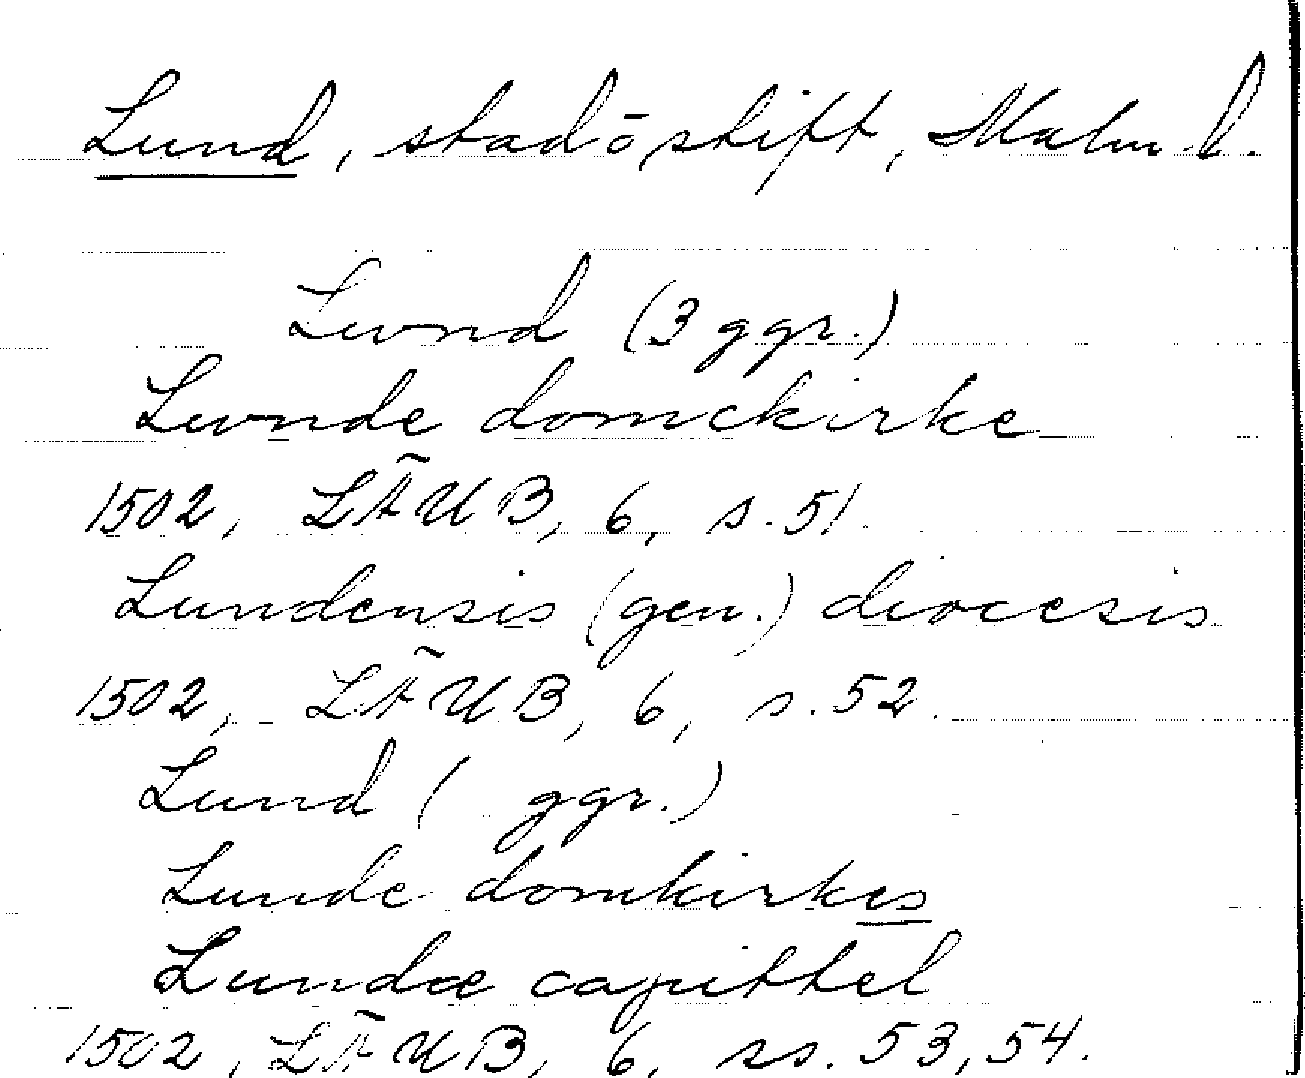 Lund, stad o stift, Malm. l.
Lvnd (3 ggr.)
Lvnde domckirke
1502, LÄUB, 6, s. 51.
Lundensis (gen.) diocesis
1502, LÄUB, 6, s. 52.
Lund ( ggr.)
Lunde domkirkes
Lundæ capittel
1502, LÄUB, 6, ss. 53, 54.